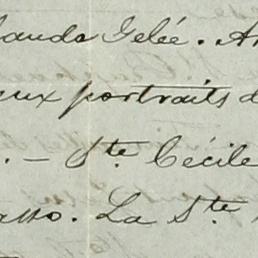 auda Gelée. A
eux portraits d
. – Ste Cécile
asso. La Ste